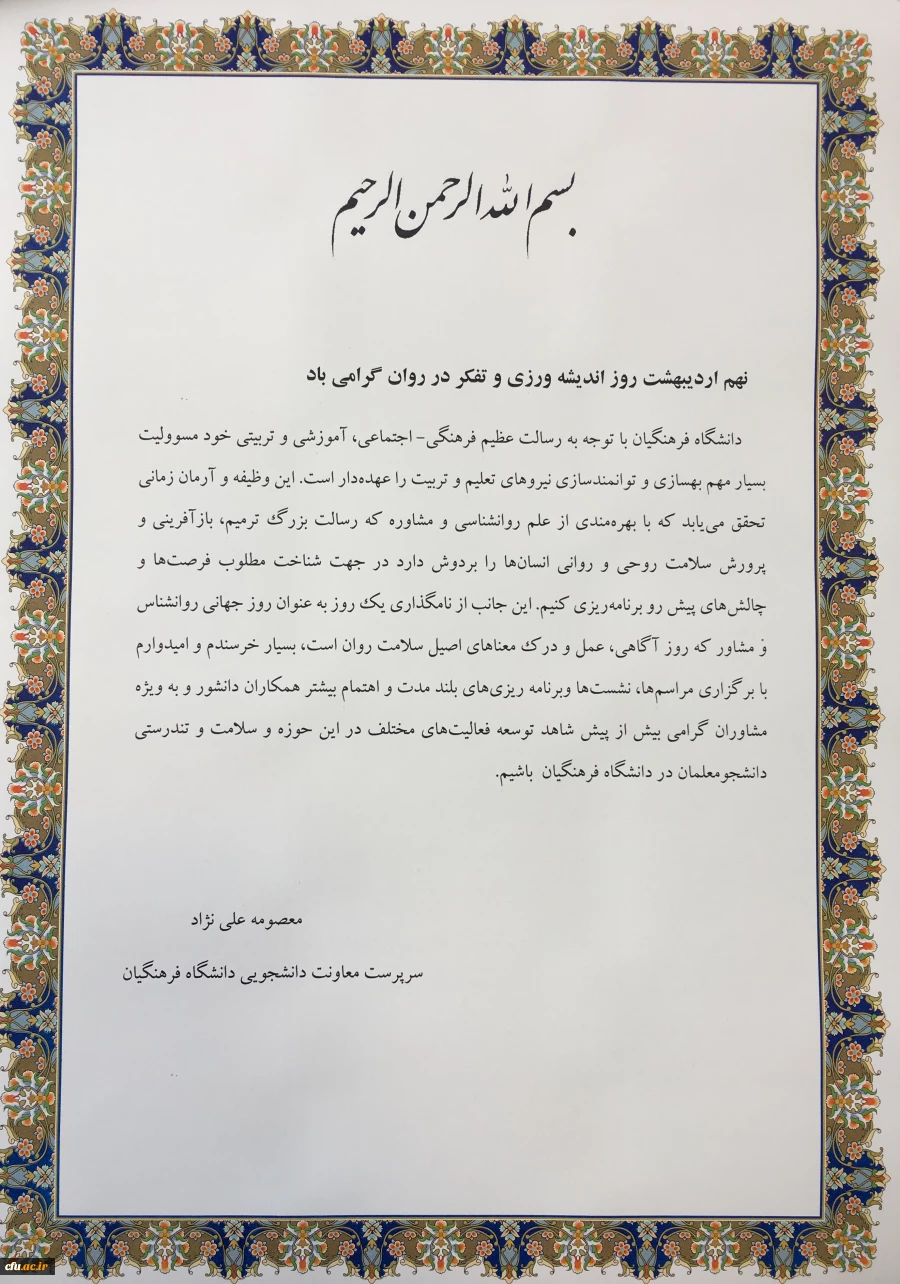 بسم الله الرحمن الرحیم
نهم اردیبهشت روز اندیشه ورزی و تفکر در روان گرامی باد
دانشگاه فرهنگیان با توجه به رسالت عظیم فرهنگی- اجتماعی، آموزشی و تربیتی خود مسوولیت
بسیار مهم بهسازی و توانمندسازی نیروهای تعلیم و تربیت را عهده‌دار است. این وظیفه و آرمان زمانی
تحقق می‌یابد که با بهره‌مندی از علم روانشناسی و مشاوره که رسالت بزرگ ترمیم، بازآفرینی و
پرورش سلامت روحی و روانی انسان‌ها را بردوش دارد در جهت شناخت مطلوب فرصت‌ها و
چالش‌های پیش رو برنامه‌ریزی کنیم. این جانب از نامگذاری یک روز به عنوان روز جهانی روانشناس
و مشاور که روز آگاهی، عمل و درک معناهای اصیل سلامت روان است، بسیار خرسندم و امیدوارم
با برگزاری مراسم‌ها، نشست‌ها وبرنامه ریزی‌های بلند مدت و اهتمام بیشتر همکاران دانشور و به ویژه
مشاوران گرامی بیش از پیش شاهد توسعه فعالیت‌های مختلف در این حوزه و سلامت و تندرستی
دانشجومعلمان در دانشگاه فرهنگیان باشیم.
معصومه علی نژاد
سرپرست معاونت دانشجویی دانشگاه فرهنگیان
cfu.ac.ir